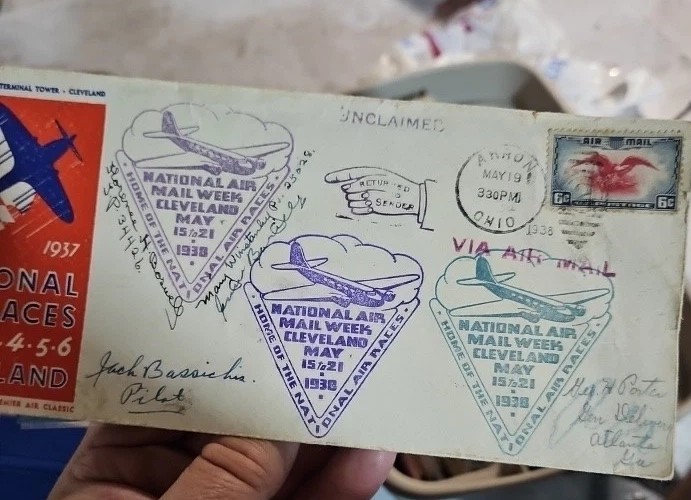 TERMINAL TOWER - CLEVELAND
1937
ONAL
ACES
.4.5.6
LAND
EMIER AIR CLASSIC
UNCLAIMED
NATIONAL AIR
MAIL WEEK
CLEVELAND
MAY
15 to 21
1938
HOME OF THE NATIONAL AIR RACES
RETURNED
TO
SENDER
AKRON
MAY 19
330PM
OHIO
1938
AIR MAIL
6¢ 6¢
VIA AIR MAIL
NATIONAL AIR
MAIL WEEK
CLEVELAND
MAY
15 to 21
1938
HOME OF THE NATIONAL AIR RACES
NATIONAL AIR
MAIL WEEK
CLEVELAND
MAY
15 to 21
1938
HOME OF THE NATIONAL AIR RACES
P. 34426.
25028.
Jack Bassichis.
Pilot
Geo. H Porter
Gen Delivery
Atlanta
Ga